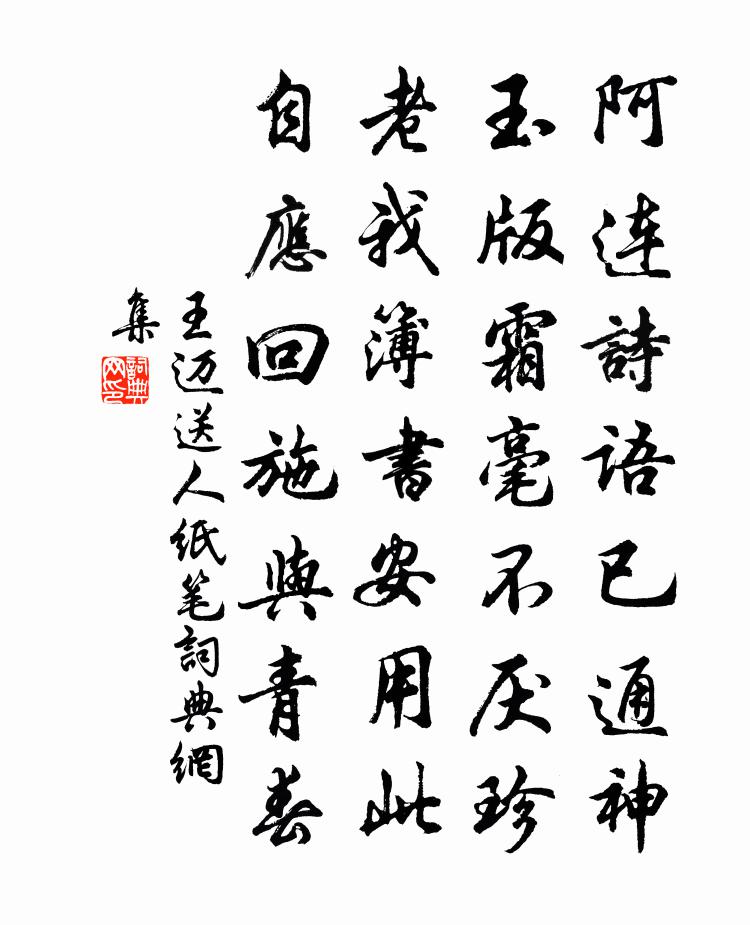 阿连詩語已通神
玉版霜毫不厌珍
老我簿書安用此
自應回施與青春
王迈送人纸笔詞典網
集
詞典
网印